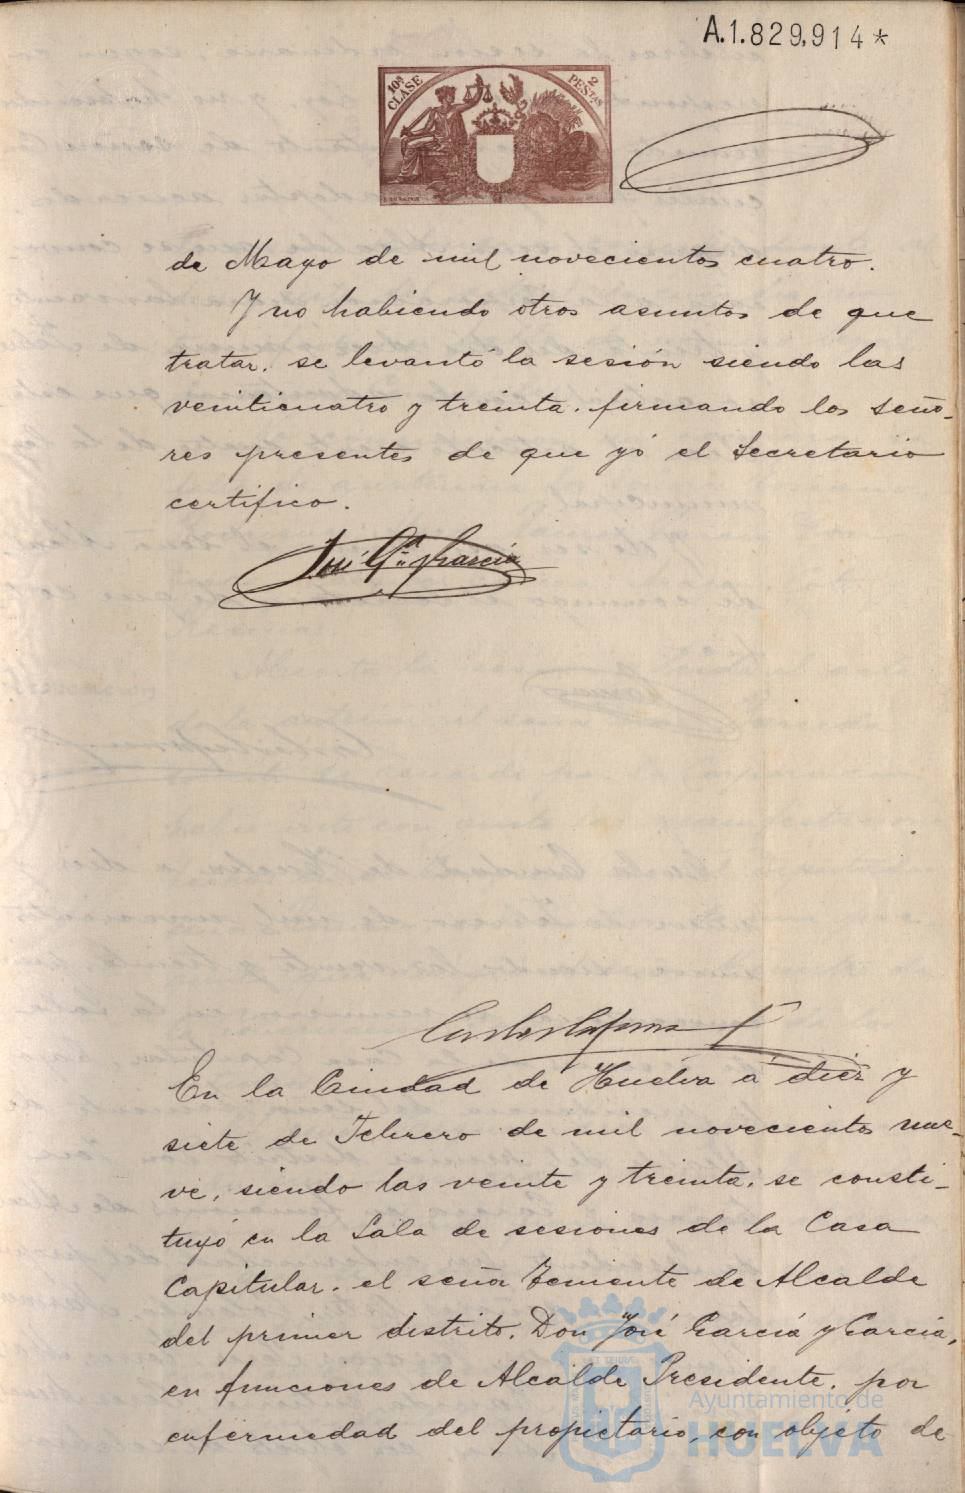 A.1.829,914*
10ª CLASE
2 PESETAS
de Mayo de mil novecientos cuatro.
Y no habiendo otros asuntos de que
tratar, se levantó la sesión siendo las
veinticuatro y treinta, firmando los seño-
res presentes de que yó el Secretario
certifico.
José Gª García
En la Ciudad de Huelva á diez y
siete de Febrero de mil novecientos nue-
ve, siendo las veinte y treinta, se consti-
tuyó en la Sala de sesiones de la Casa
Capitular, el señor Teniente de Alcalde
del primer distrito, Don José García y García,
en funciones de Alcalde Presidente, por
enfermedad del propietario, con objeto de
Ayuntamiento de
HUELVA